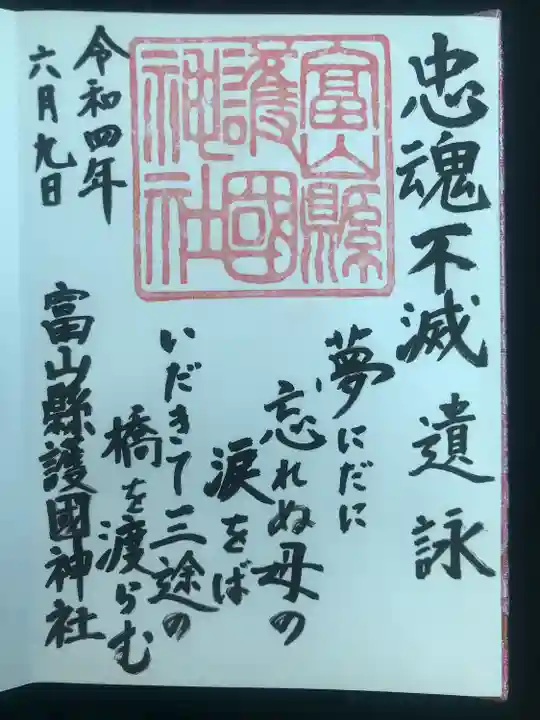 忠魂不滅 遺詠
夢にだに
忘れぬ母の
涙をば
いだきて三途の
橋を渡らむ
富山縣
護國
神社
令和四年
六月九日
富山縣護國神社